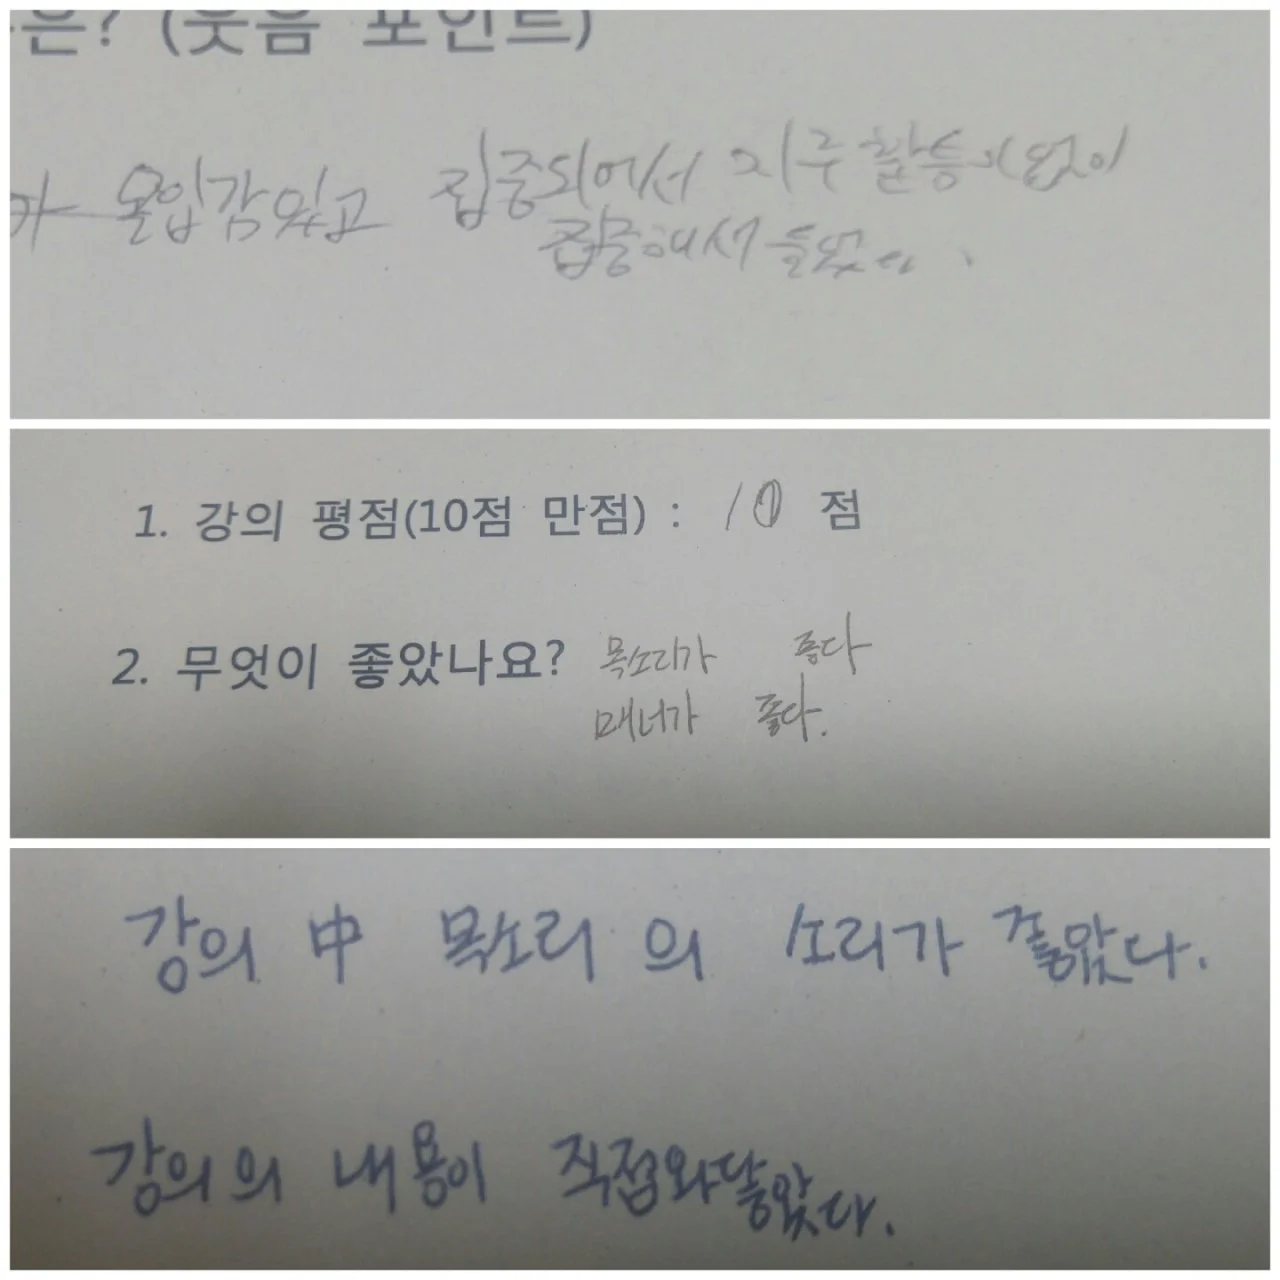 은? (웃음 포인트)
가 몰입감있고 집중되어서 지루할틈이없이
집중해서 들었다.
1. 강의 평점(10점 만점) : 10 점
2. 무엇이 좋았나요? 목소리가 좋다
매너가 좋다.
강의 中 목소리의 소리가 좋았다.
강의의 내용이 직접와닿았다.